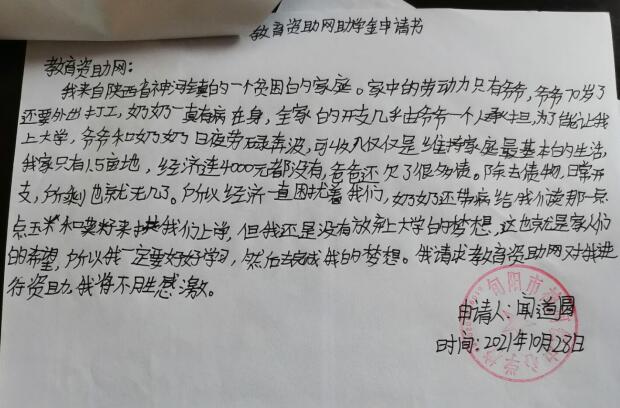 教育资助网助学金申请书
教育资助网：
我来自陕西省神河镇的一个贫困的家庭。家中的劳动力只有爷爷，爷爷70岁了
还要外出打工，奶奶一直有病在身，全家的开支几乎由爷爷一个人承担，为了能让我
上大学，爷爷和奶奶日夜劳碌奔波，可收入仅仅是维持家庭最基本的生活，
我家只有1.5亩地，经济连4000元都没有，爸爸还欠了很多债。除去债物，日常开
支，所剩也就无几了。所以经济一直困扰着我们，奶奶还带病给我们卖那一点
点玉米和菜籽来供我们上学，但我还是没有放弃上大学的梦想，这也就是家人们
的希望，所以我一定要好好学习，然后去完成我的梦想。我请求教育资助网对我进
行资助，我将不胜感激。
旬阳市
申请人：闻道圆
时间：2021年10月28日